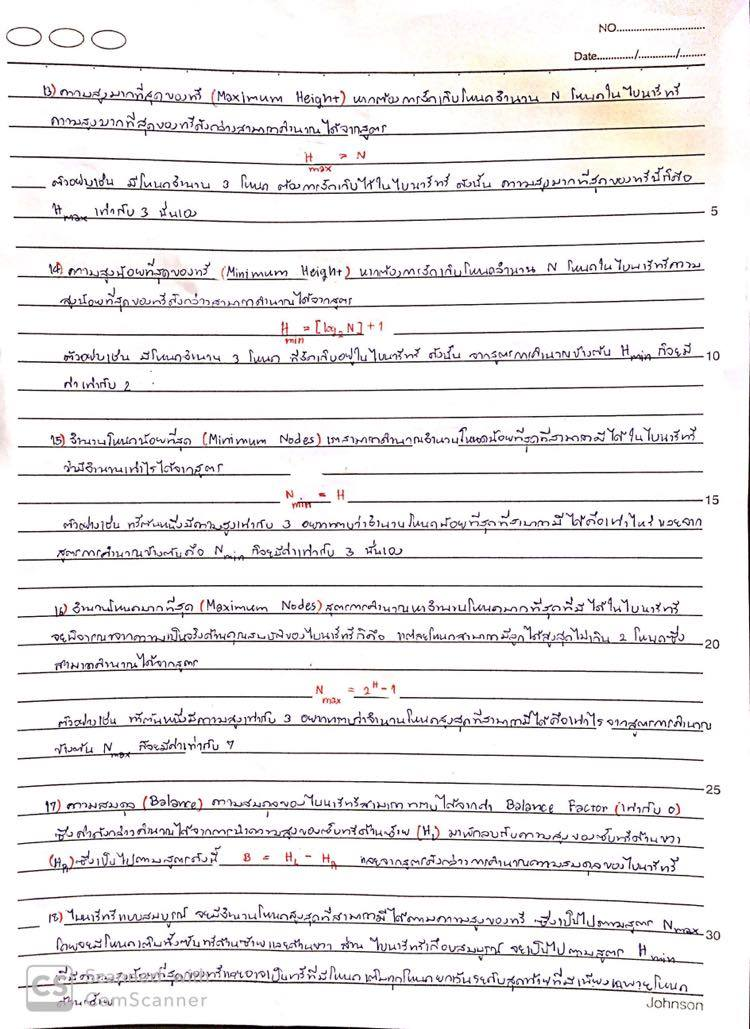 NO.
Date.
13) ความสูงมากที่สุดของทรี (Maximum Height) หากต้องการจัดเก็บโหนดจำนวน N โหนดในไบนารีทรี
ความสูงมากที่สุดของทรีดังกล่าวสามารถคำนวณได้จากสูตร
Hmax = N
ตัวอย่างเช่น มีโหนดจำนวน 3 โหนด ต้องการจัดเก็บไว้ในไบนารีทรี ดังนั้น ความสูงมากที่สุดของทรีนี้ก็คือ
Hmax เท่ากับ 3 นั่นเอง
5
14) ความสูงน้อยที่สุดของทรี (Minimum Height) หากต้องการจัดเก็บโหนดจำนวน N โหนดในไบนารีทรีความ
สูงน้อยที่สุดของทรีดังกล่าวสามารถคำนวณได้จากสูตร
Hmin = [log2 N] + 1
ตัวอย่างเช่น มีโหนดจำนวน 3 โหนด ที่จัดเก็บอยู่ในไบนารีทรี ดังนั้น จากสูตรการคำนวณข้างต้น Hmin ก็จะมี
10
ค่าเท่ากับ 2
15) จำนวนโหนดน้อยที่สุด (Minimum Nodes) เราสามารถคำนวณจำนวนโหนดน้อยที่สุดที่สามารถมีได้ในไบนารีทรี
ว่ามีจำนวนเท่าไรได้จากสูตร
Nmin = H
15
ตัวอย่างเช่น ทรีต้นหนึ่งมีความสูงเท่ากับ 3 อยากทราบว่าจำนวนโหนดน้อยที่สุดที่สามารถมีได้คือเท่าไหร่ ซึ่งจาก
สูตรการคำนวณข้างต้นคือ Nmin ก็จะมีค่าเท่ากับ 3 นั่นเอง
16) จำนวนโหนดมากที่สุด (Maximum Nodes) สูตรการคำนวณหาจำนวนโหนดมากที่สุดที่มีได้ในไบนารีทรี
จะพิจารณาจากความเป็นจริงด้านคุณสมบัติของไบนารีทรีก็คือ แต่ละโหนดสามารถมีลูกได้สูงสุดไม่เกิน 2 โหนดซึ่ง
20
สามารถคำนวณได้จากสูตร
Nmax = 2^H - 1
ตัวอย่างเช่น ทรีต้นหนึ่งมีความสูงเท่ากับ 3 อยากทราบว่าจำนวนโหนดสูงสุดที่สามารถมีได้คือเท่าไร จากสูตรการคำนวณ
ข้างต้น Nmax ก็จะมีค่าเท่ากับ 7
25
17) ความสมดุล (Balance) ความสมดุลของไบนารีทรีสามารถทราบได้จากค่า Balance Factor (เท่ากับ 0)
ซึ่งค่าดังกล่าวคำนวณได้จากการนำความสูงของซับทรีด้านซ้าย (HL) มาหักลบกับความสูงของซับทรีด้านขวา
(HR) ซึ่งเป็นไปตามสูตรดังนี้ B = HL - HR และจากสูตรดังกล่าวการคำนวณความสมดุลของไบนารีทรี
18) ไบนารีทรีแบบสมบูรณ์ จะมีจำนวนโหนดสูงสุดที่สามารถมีได้ตามความสูงของทรี ซึ่งเป็นไปตามสูตร Nmax
30
โดยจะมีโหนดเต็มทั้งซับทรีด้านซ้ายและด้านขวา ส่วน ไบนารีทรีเกือบสมบูรณ์ จะเป็นไปตามสูตร Hmin
ที่มีความสูงน้อยที่สุดของทรีและอาจเป็นทรีที่มีโหนดเต็มทุกโหนดยกเว้นระดับสุดท้ายที่มีเพียงเฉพาะโหนด
ด้านซ้าย
CS Scanned with CamScanner
Johnson